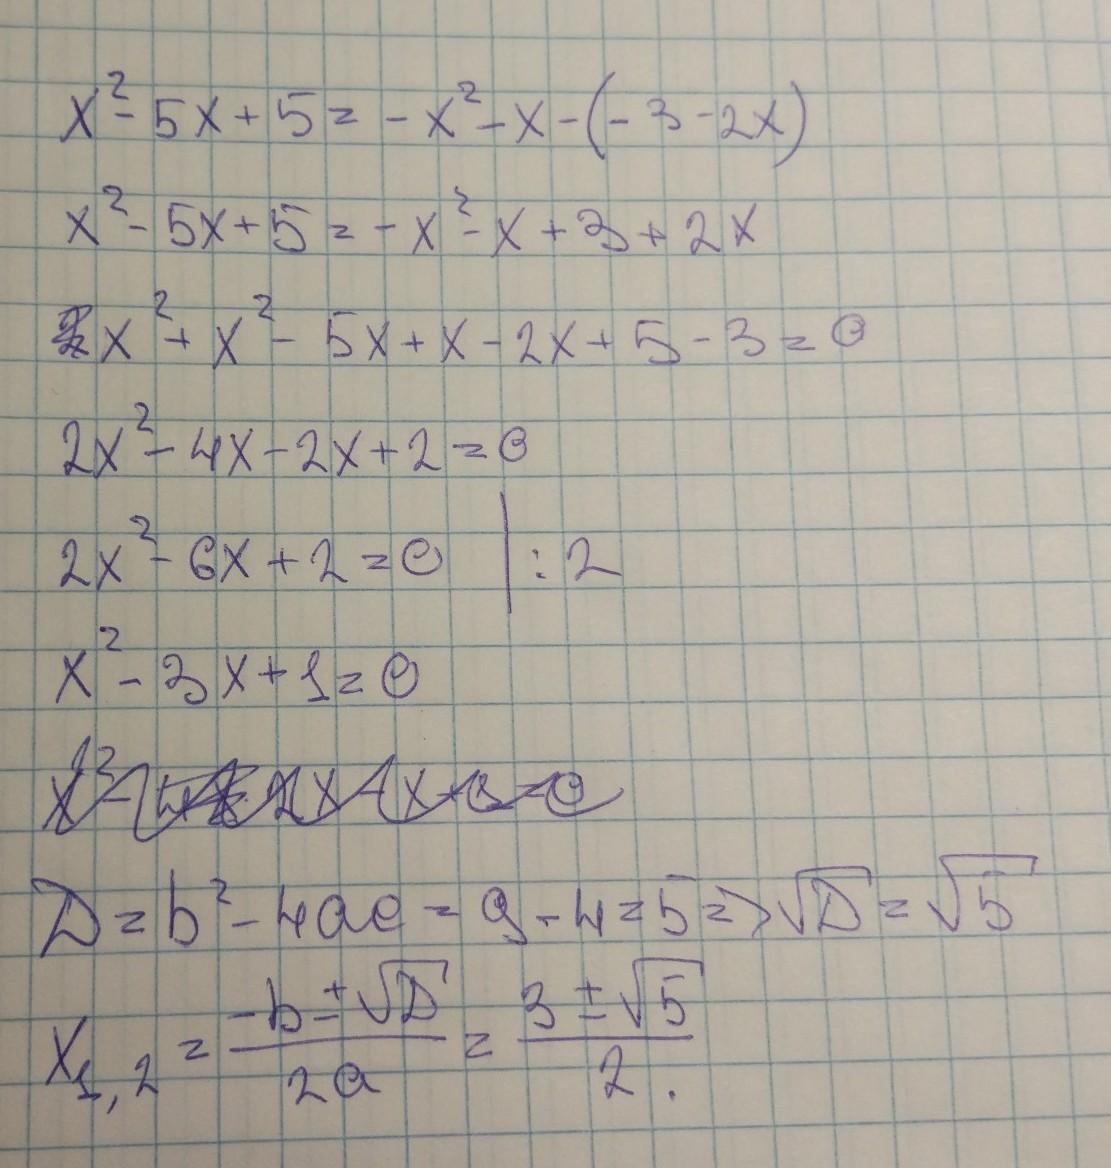 x² - 5x + 5 = - x² - x - (- 3 - 2x)
x² - 5x + 5 = - x² - x + 3 + 2x
x² + x² - 5x + x - 2x + 5 - 3 = 0
2x² - 4x - 2x + 2 = 0
2x² - 6x + 2 = 0 | : 2
x² - 3x + 1 = 0
D = b² - 4ac = 9 - 4 = 5 => √D = √5
x₁,₂ = (-b ± √D)/2a = (3 ± √5)/2.